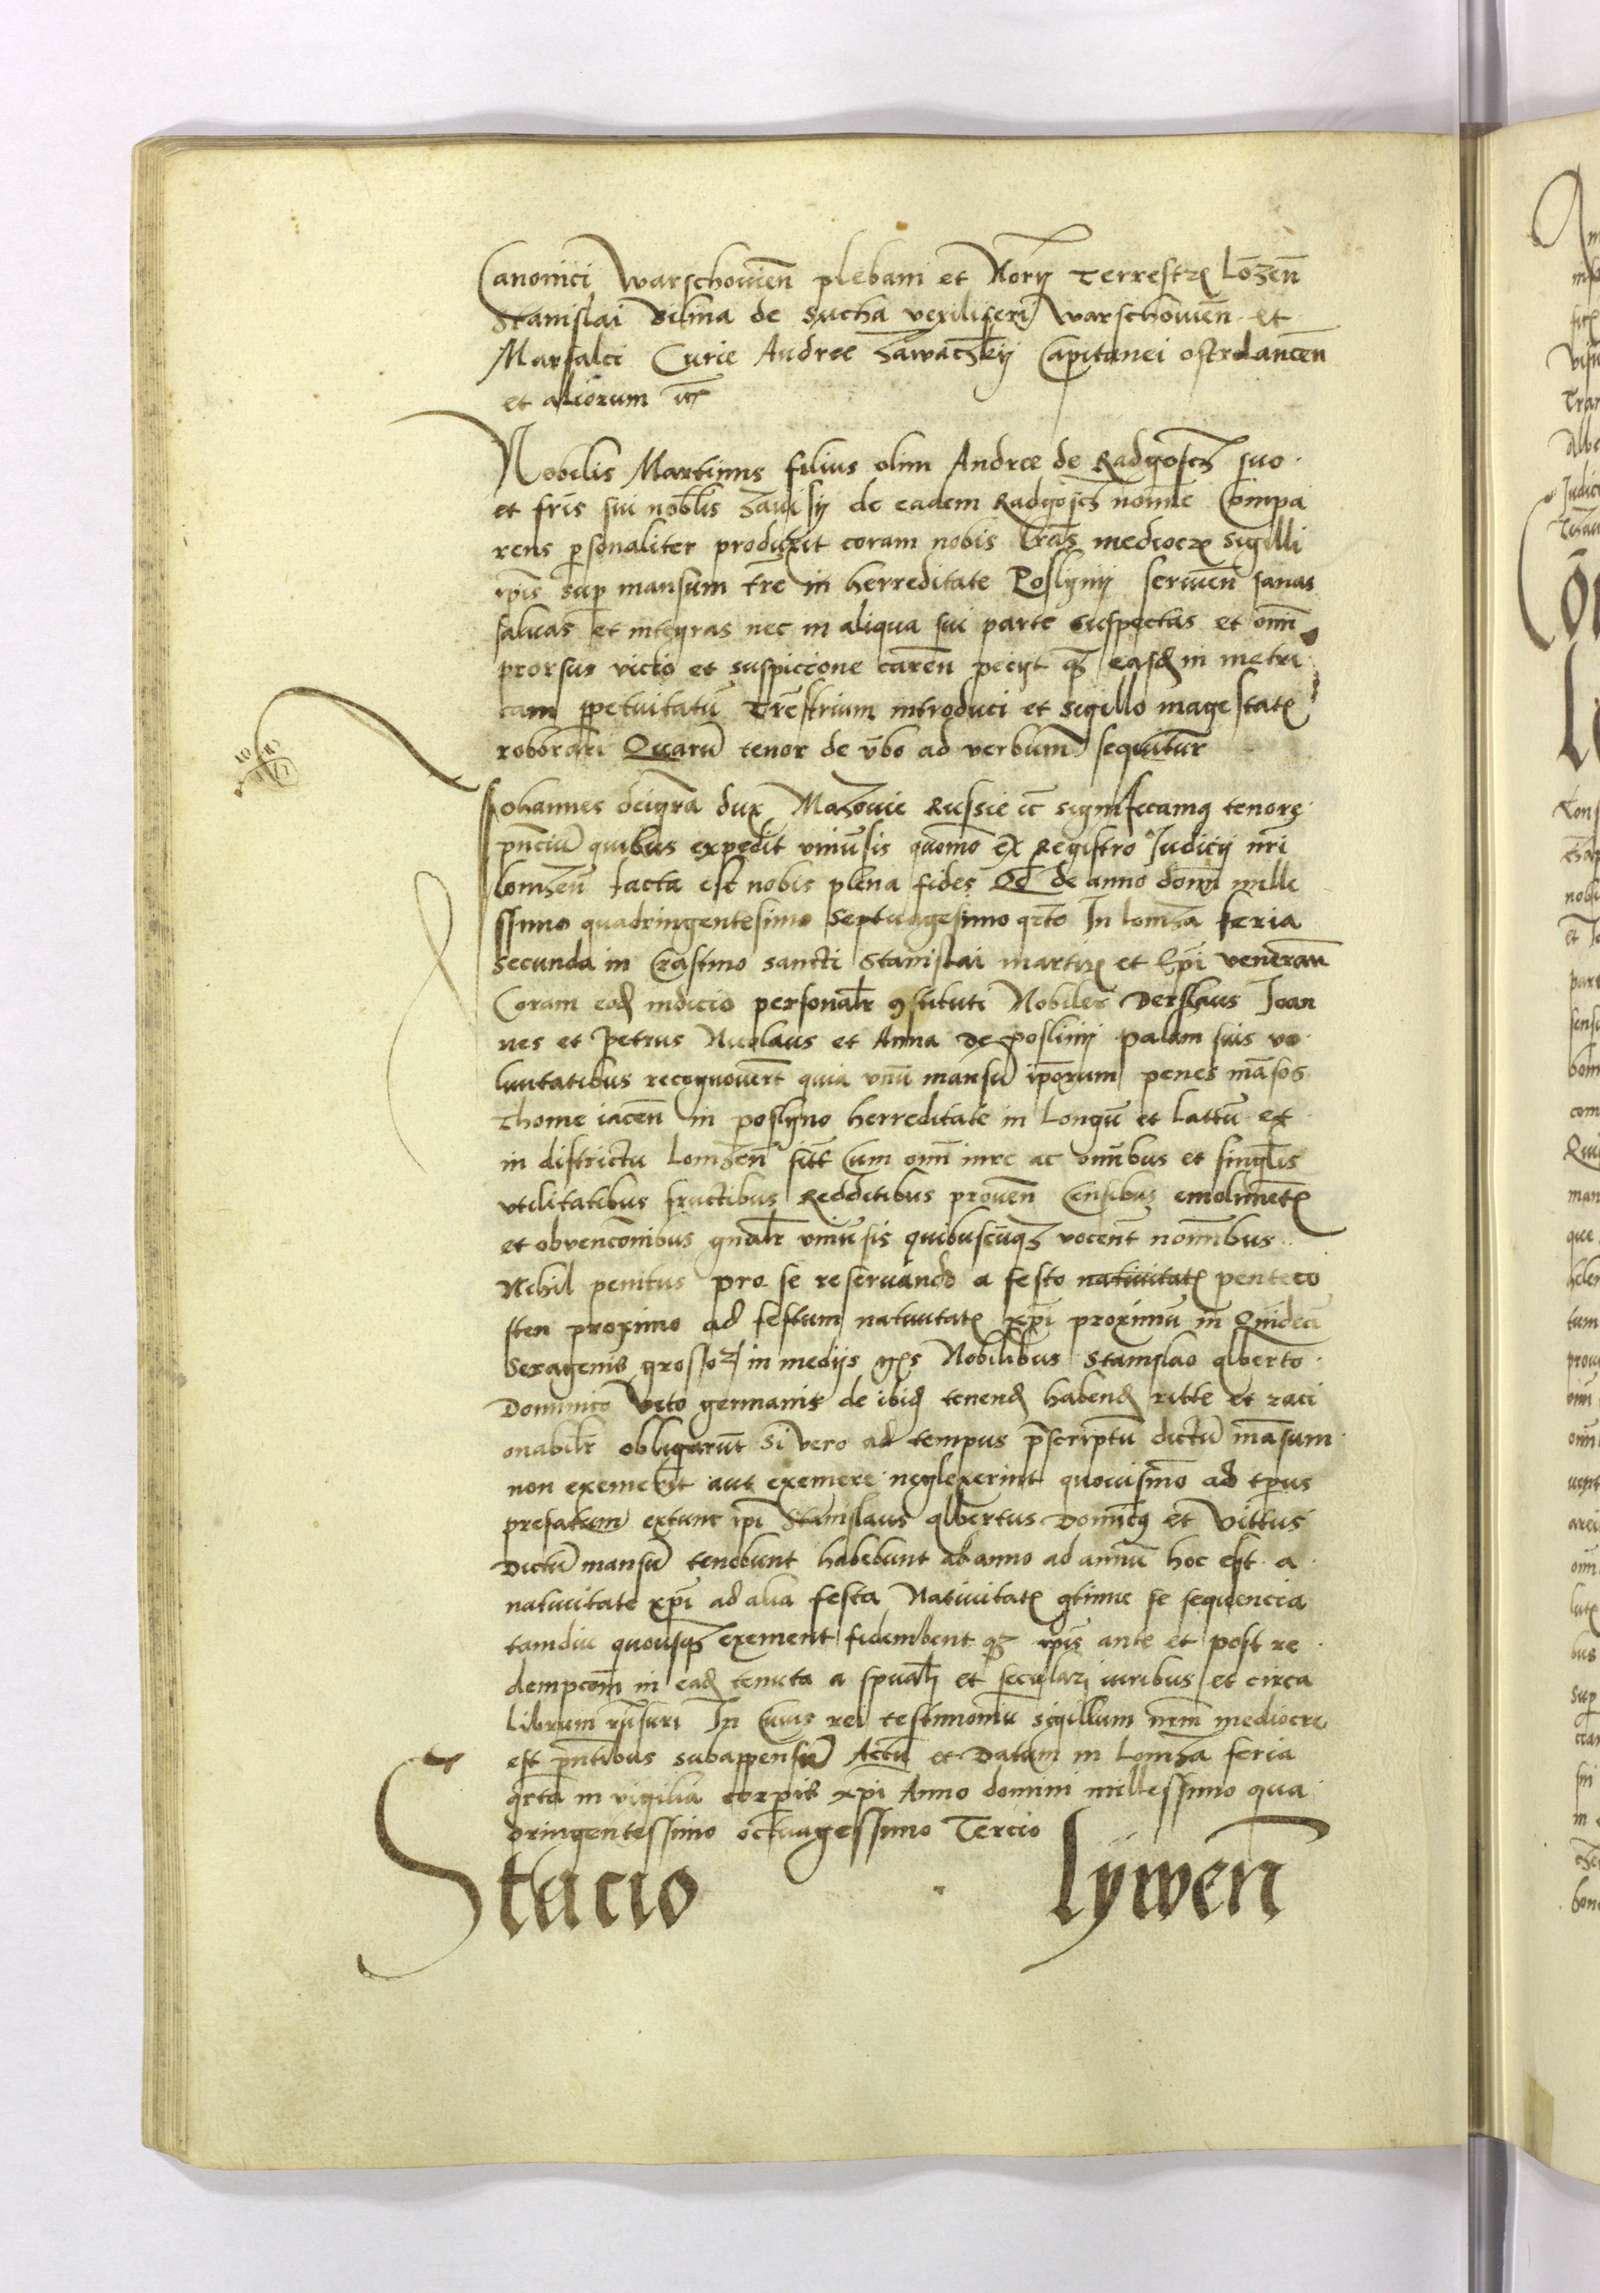 Canonici Warschouien plebani et Norij Terrestrꝭ Lozen
Stanislai Bilina de Sucha vexiliferi Warschouien et
Marsalci Curie Andree Zawaczkij Capitanei ostrolancen
et aliorum
Nobilis Martinus filius olim Andree de Radgoscz suo
et fris sui noblis Zauisij de eadem Radgoscz nomie Compa
rens psonaliter produxit coram nobis lras mediocrꝭ sigilli
ipis sup mansum tre in herreditate Poslynij seruien sanas
saluas et integras nec in aliqua sui parte suspectas et omi
prorsus vicio et suspiccione caren peciit qz easd in metri
cam ppetuitatu Trestrium introduci et sigillo magestatꝭ
roborari Quaru tenor de vbo ad verbum sequitur
Johannes deigra dux Mazouie Russie ic significamꝰ tenorę
pnciu quibus expedit vniusis quomo ex Registro Judicij nri
lomzen facta est nobis plena fides Qd de anno domi mille
ssimo quadringentesimo septuagesimo qrto In lomza feria
secunda in Crastino sancti Stanislai martirꝭ et Epi veneran
Coram eod iudicio personalr ꝯstituti Nobiles Derslaus Joan
nes et Petrus Nicolaus et Anna de poslinij palam suis vo
luntatibus recognouert quia vnu mansu iporum penes masos
Thome iacen in poslyno herreditate in Longu et Lattu et
in districtu Lomzen sitt Cum omi iure ac omibus et singlis
vtilitatibus fructibus Redditibus prouen Censibus emolimetꝭ
et obvenconibus gnalr vniusis quibuscuqz vocent nomibus
Nihil penitus pro se reseruando a festo natiuitatꝭ penteco
sten proximo ad festum natiuitatꝭ xpi proximu in Quideci
Sexagenis grossoꝝ in medijs gꝭs Nobilibus Stanislao alberto
Dominico Vito germanis de ibid tenend habend ritte et raci
onabilr obligarut Si vero ad tempus pscriptu dictu masum
non exemerit aut exemere neglexerint quouismo ad tpus
prefatum extunc ipi Stanislaus albertus Domicꝰ et Vittus
Dictu mansu tenebunt habebunt ab anno ad annu hoc est a
natiuitate xpi ad alia festa Natiuitatꝭ ꝯtinue se sequencia
tamdiu quousqz exement fidembent qz ipis ante et post re
dempcom in ead tenuta a spualj et seculari iuribus et circa
librum Cuius rei testimoniu sigillum nrm mediocre
est pntibus subappensu Actu et Datum in Lomza feria
qrta in vigilia corpis xpi Anno domini millessimo qua
dringentessimo octuagessimo Tercio
Stacio Lywen